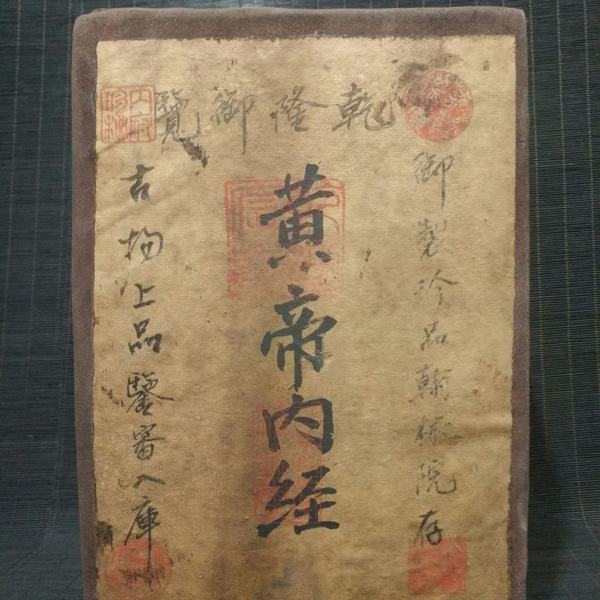 乾隆御覽
御製珍品翰林院存
黄帝内经
古物上品鑒審入庫
内府